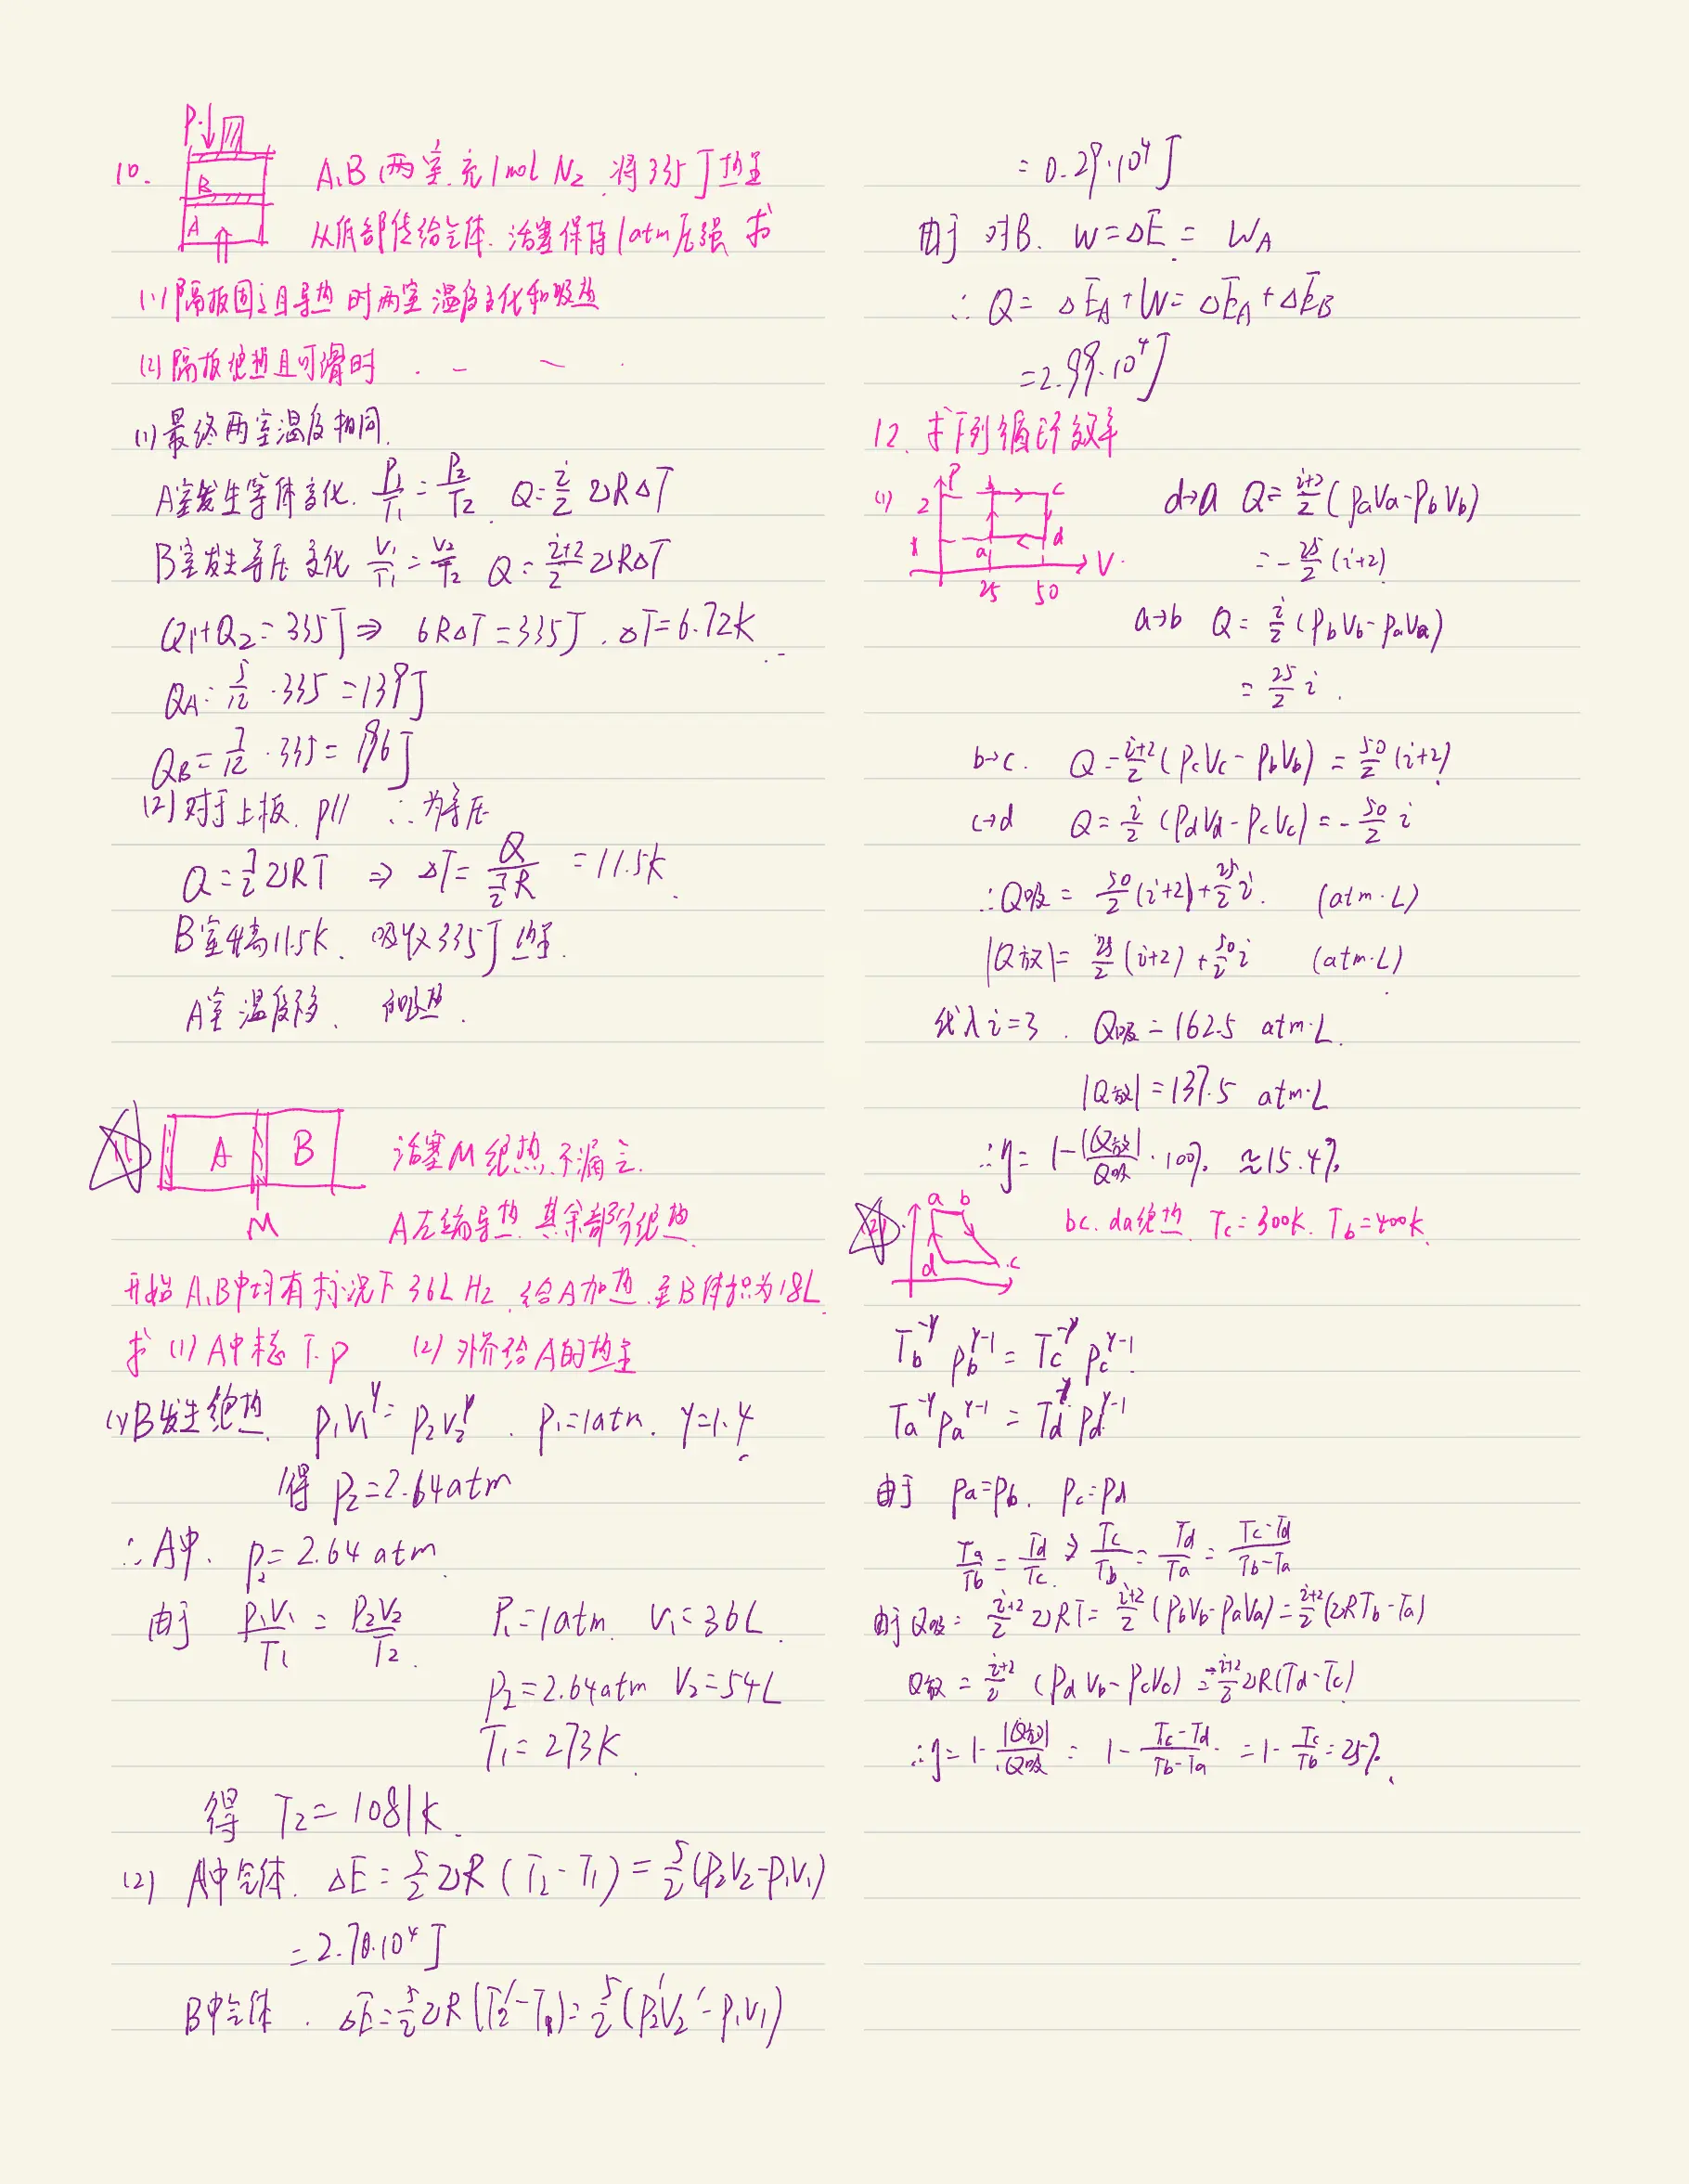 P↓
10.
B
A
A,B 两室充 1mol N₂ 将335J热量
从低部传给气体. 活塞保持1atm压强 求
(1) 隔板固定且导热时两室温度变化和吸热
(2) 隔板绝热且可滑时 . - - .
(1) 最终两室温度相同.
A室发生等体变化. P₁/T₁ = P₂/T₂. Q = i/2 νRΔT
B室发生等压变化 V₁/T₁ = V₂/T₂ Q = (i+2)/2 νRΔT
Q₁+Q₂ = 335J ⇒ 6RΔT = 335J. ΔT = 6.72K
Q_A = 5/12 · 335 = 139J
Q_B = 7/12 · 335 = 196J
(2) 对于上板. p// ∴为等压
Q = 7/2 νRT ⇒ ΔT = Q/(7/2 R) = 11.5K.
B室升高11.5K、吸收335J热量.
A室温度
11
A B
M
活塞M绝热.不漏气.
A左端导热.其余部分绝热.
开始A,B中均有标况下36L H₂.给A加热.至B体积为18L
求 (1) A中末态T.p (2) 外界给A的热量
(1) B发生绝热. p₁V₁^γ = p₂V₂^γ. p₁=1atm. γ=1.4
得 p₂=2.64atm
∴A中. p₂ = 2.64 atm.
由于 p₁V₁/T₁ = p₂V₂/T₂. P₁=1atm. V₁=36L.
p₂=2.64atm V₂=54L
T₁=273K.
得 T₂=1081K.
(2) A中气体. ΔE = 5/2 νR(T₂-T₁) = 5/2 (p₂V₂-p₁V₁)
= 2.70·10⁴J
B中气体. ΔE = 5/2 νR(T₂'-T₁) = 5/2 (p₂'V₂'-p₁V₁)
= 0.29·10⁴J
由于 对B. W=ΔE = W_A
∴ Q = ΔE_A+W = ΔE_A+ΔE_B
= 2.99·10⁴J
12. 求下列循环效率
(1)
P
2 b c
1 a d
V
25 50
d→a Q = (i+2)/2 (PaVa-PbVb)
= -25/2 (i+2)
a→b Q = i/2 (PbVb-PaVa)
= 25/2 i.
b→c. Q = (i+2)/2 (PcVc-PbVb) = 50/2 (i+2)
c→d Q = i/2 (PdVd-PcVc) = -50/2 i
∴Q吸 = 50/2 (i+2)+25/2 i. (atm·L)
|Q放| = 25/2 (i+2)+50/2 i (atm·L)
代入i=3. Q吸 = 162.5 atm·L.
|Q放| = 137.5 atm·L
∴η = 1-|Q放|/Q吸 ·100% ≈15.4%
(2)
a b
d c
bc.da绝热. Tc=300K. Tb=400K
Tb^-γ pb^γ-1 = Tc^-γ pc^γ-1.
Ta^-γ pa^γ-1 = Td^-γ pd^γ-1
由于 pa=pb. pc=pd
Ta/Tb = Td/Tc ⇒ Tc/Tb = Td/Ta = (Tc-Td)/(Tb-Ta)
由于Q吸 = (i+2)/2 νRT = (i+2)/2 (PbVb-PaVa) = (i+2)/2 (νRTb-Ta)
Q放 = (i+2)/2 (PdVb-PcVc) = (i+2)/2 νR(Td-Tc)
∴η = 1-|Q放|/Q吸 = 1-(Tc-Td)/(Tb-Ta) = 1-Tc/Tb = 25%.